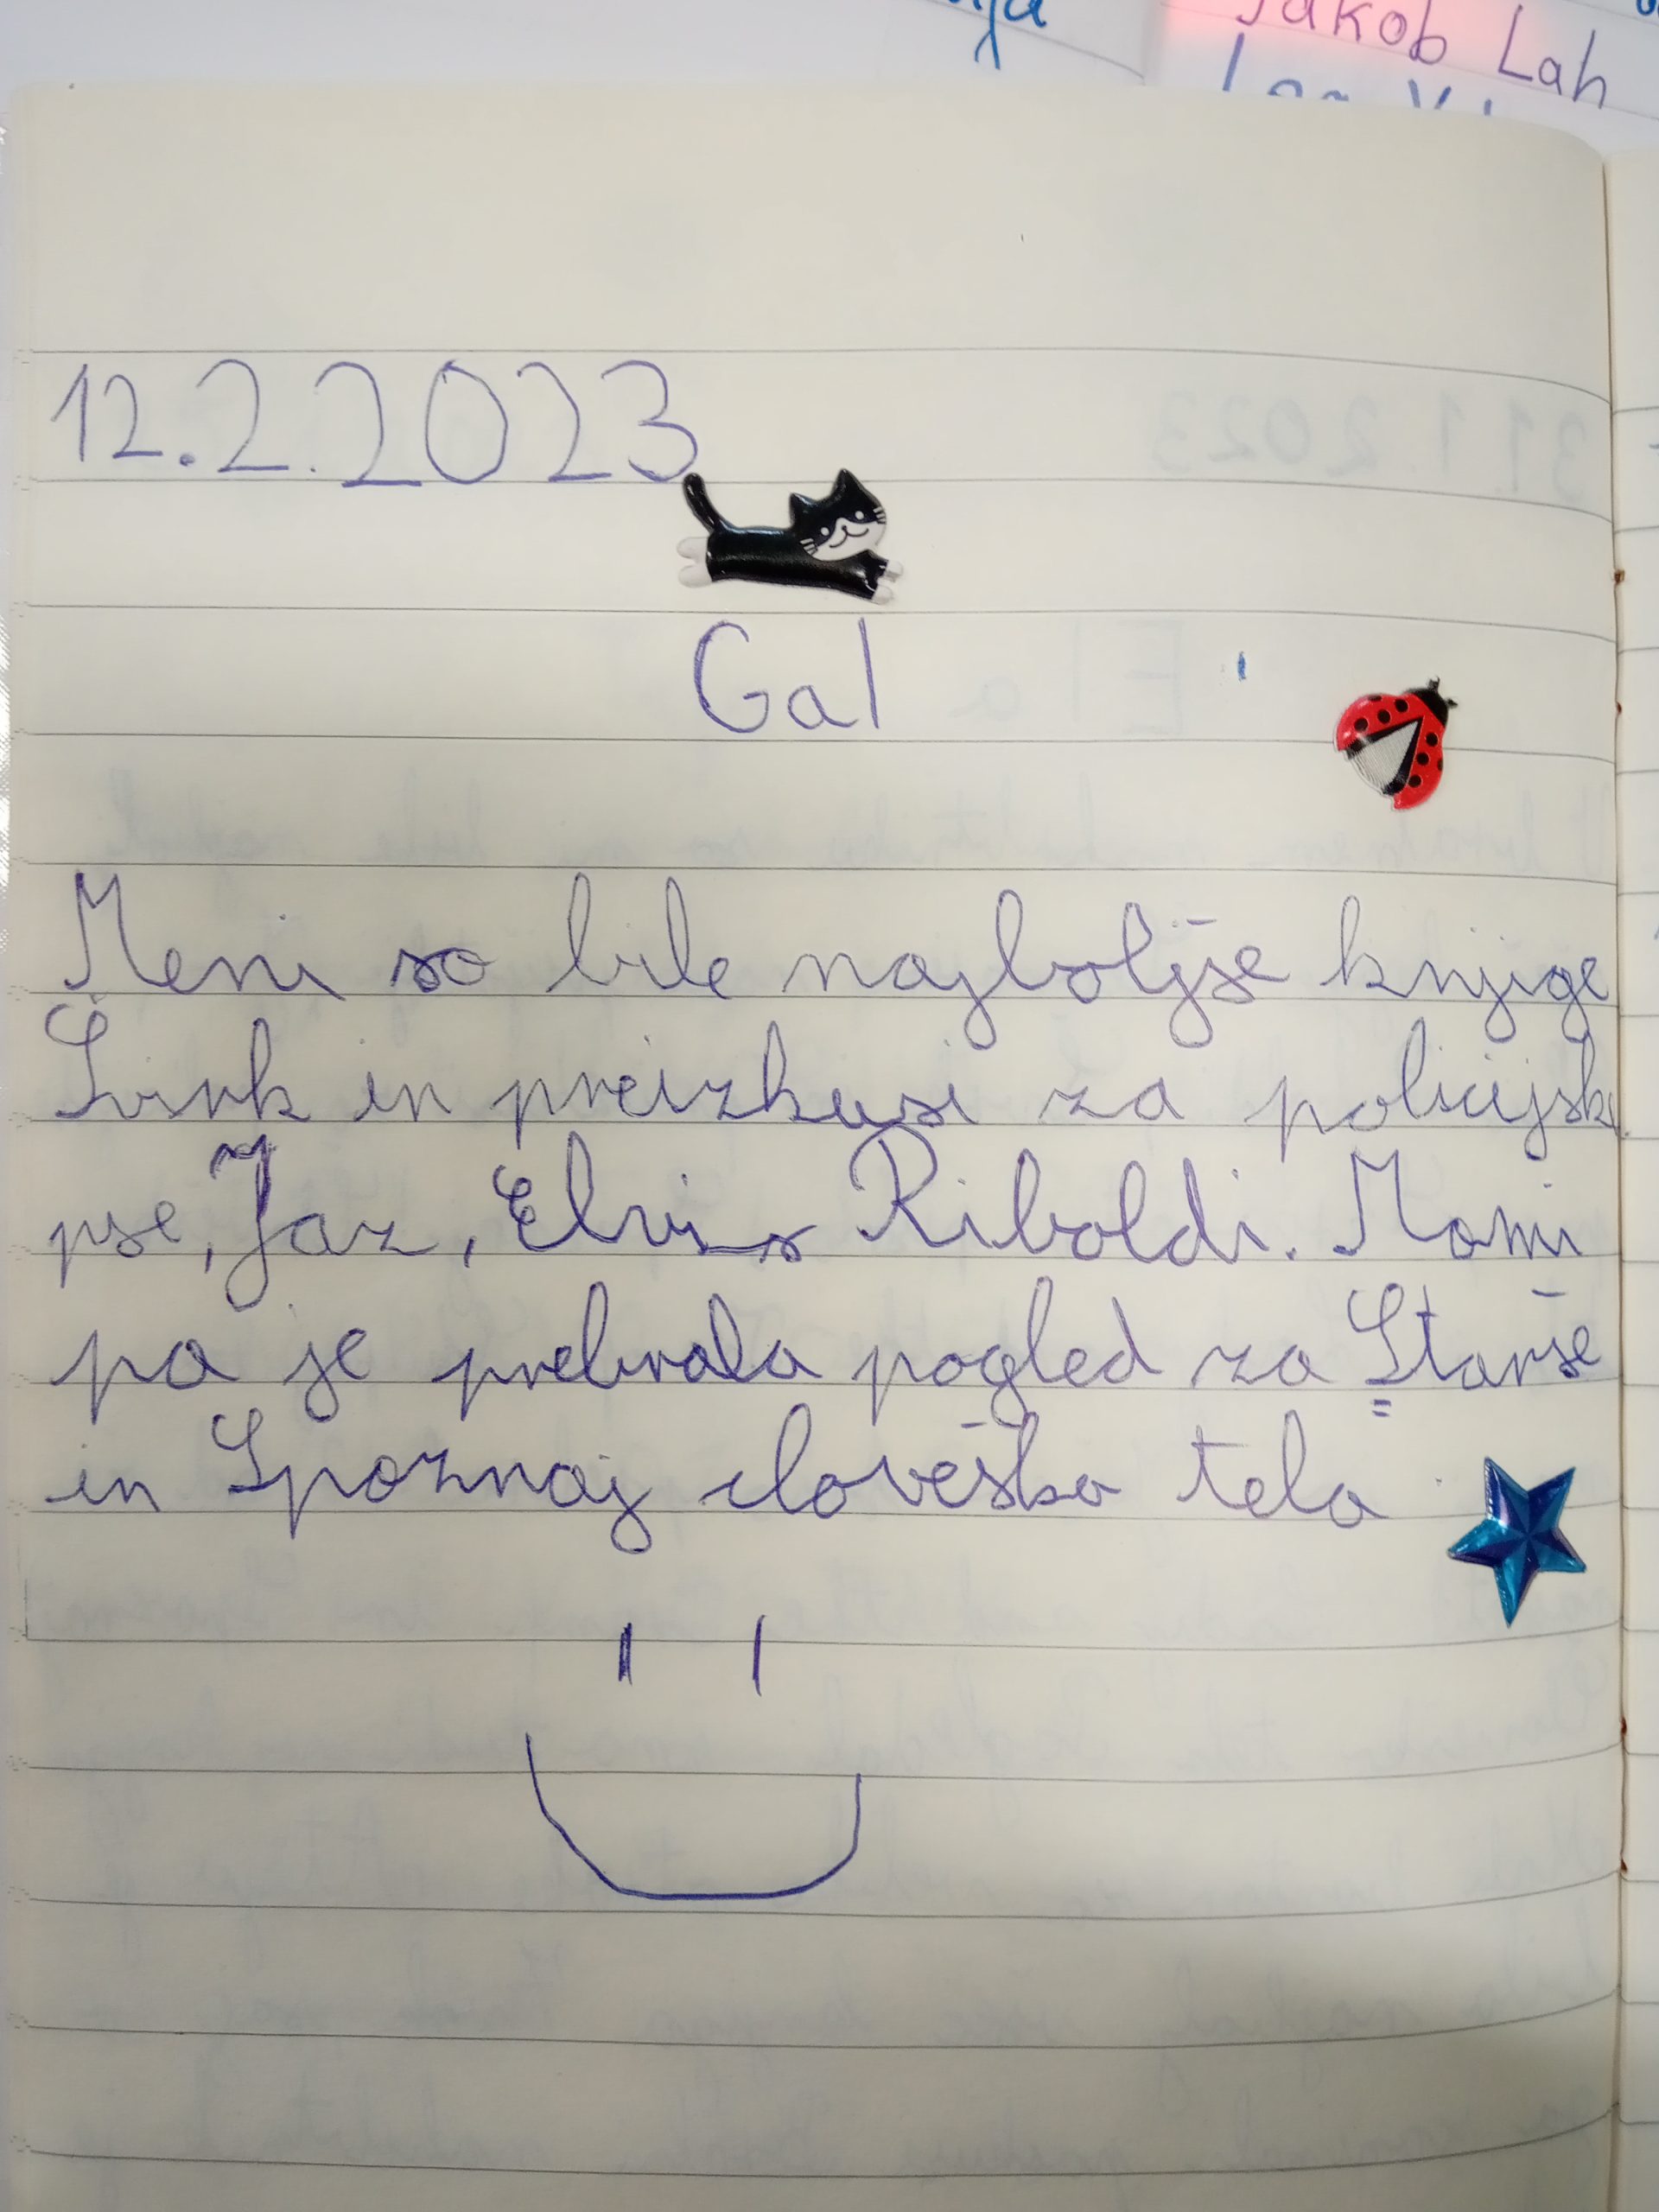 Jakob Lah
12.2.2023
Gal
Meni so bile najboljše knjige
Švrk in preizkusi za policijske
pse, Jaz, Elvis Riboldi. Mami
pa je prebrala pogled za Starše
in Spoznaj človeško telo